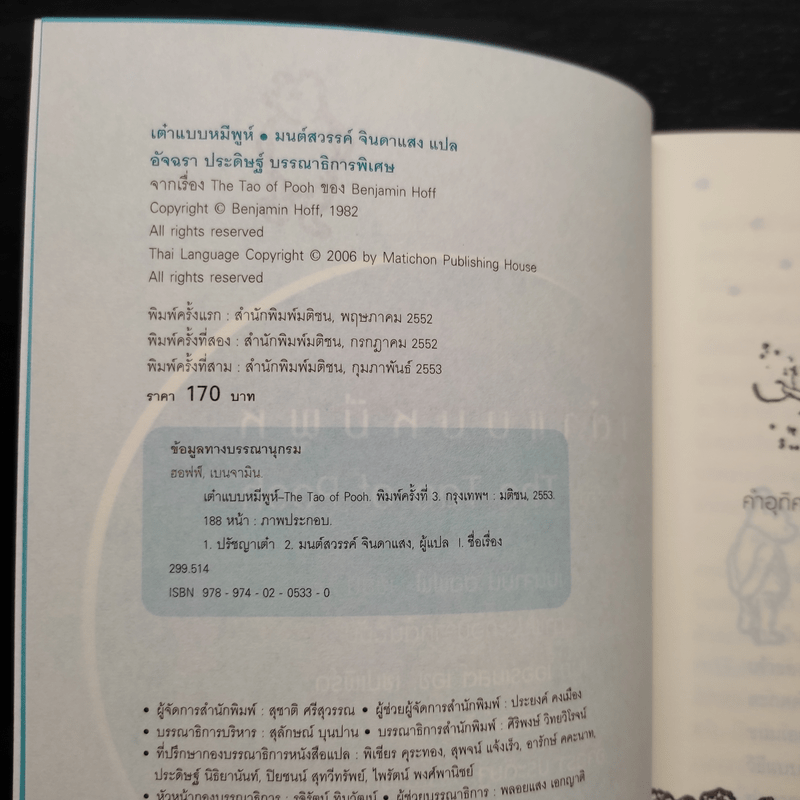 เต๋าแบบหมีพูห์ • มนต์สวรรค์ จินดาแสง แปล
อัจฉรา ประดิษฐ์ บรรณาธิการพิเศษ
จากเรื่อง The Tao of Pooh ของ Benjamin Hoff
Copyright © Benjamin Hoff, 1982
All rights reserved
Thai Language Copyright © 2006 by Matichon Publishing House
All rights reserved
พิมพ์ครั้งแรก : สำนักพิมพ์มติชน, พฤษภาคม 2552
พิมพ์ครั้งที่สอง : สำนักพิมพ์มติชน, กรกฎาคม 2552
พิมพ์ครั้งที่สาม : สำนักพิมพ์มติชน, กุมภาพันธ์ 2553
ราคา 170 บาท
ข้อมูลทางบรรณานุกรม
ฮอฟฟ์, เบนจามิน.
เต๋าแบบหมีพูห์–The Tao of Pooh. พิมพ์ครั้งที่ 3. กรุงเทพฯ : มติชน, 2553.
188 หน้า : ภาพประกอบ.
1. ปรัชญาเต๋า 2. มนต์สวรรค์ จินดาแสง, ผู้แปล I. ชื่อเรื่อง
299.514
ISBN 978 - 974 - 02 - 0533 - 0
• ผู้จัดการสำนักพิมพ์ : สุชาติ ศรีสุวรรณ • ผู้ช่วยผู้จัดการสำนักพิมพ์ : ประยงค์ คงเมือง
• บรรณาธิการบริหาร : สุลักษณ์ บุนปาน • บรรณาธิการสำนักพิมพ์ : ศิริพงษ์ วิทยวิโรจน์
• ที่ปรึกษากองบรรณาธิการหนังสือแปล : พิเชียร คุระทอง, สุพจน์ แจ้งเร็ว, อารักษ์ คคะนาท,
ประดิษฐ์ นิธิยานันท์, ปิยชนน์ สุทวีทรัพย์, ไพรัตน์ พงศ์พานิชย์
• หัวหน้ากองบรรณาธิการ : รุจิรัตน์ ทิมวัฒน์ • ผู้ช่วยบรรณาธิการ : พลอยแสง เอกญาติ
คำอุทิศ